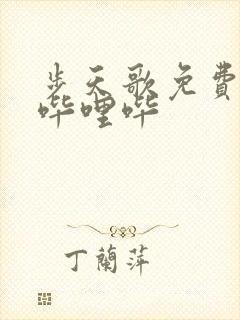 步天歌免費
哔哩哔
丁蘭萍